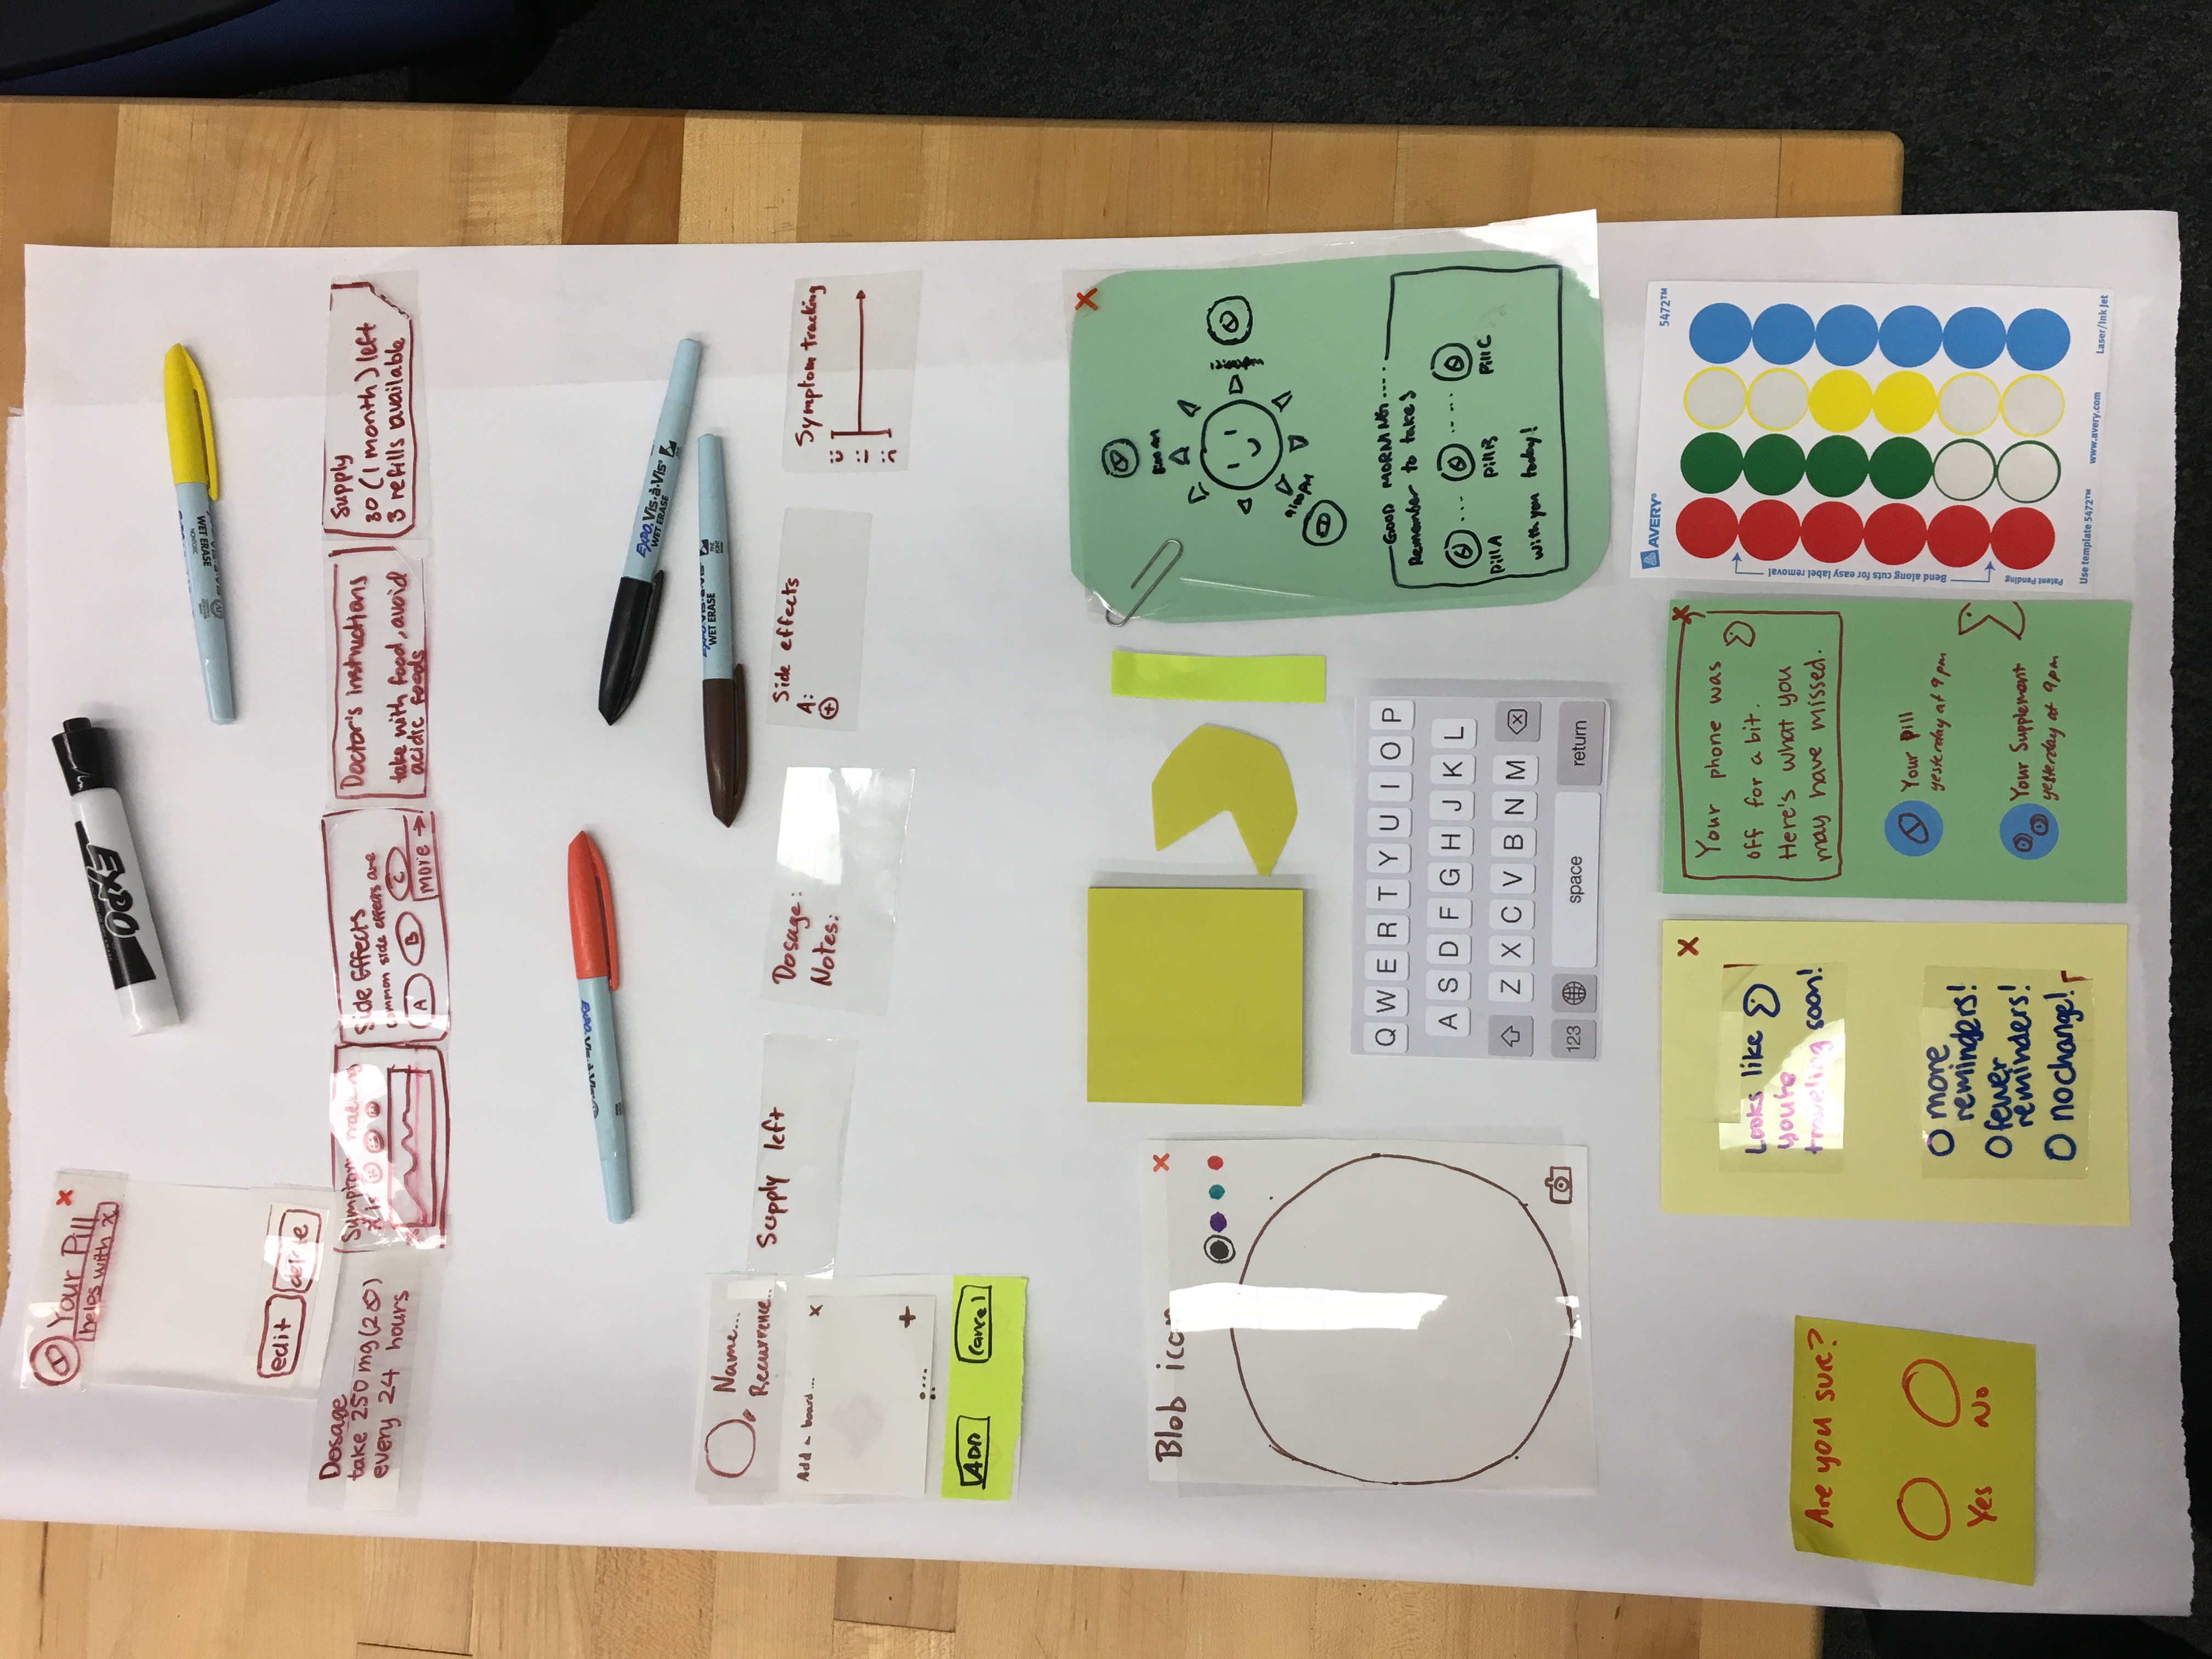 Your Pill x
helps with x
EXPO
WET ERASE
edit delete
Dosage
take 250 mg (2)
every 24 hours
Symptom tracking
x is
Side Effects
common side effects are
A B C
more →
Doctor's instructions
take with food, avoid
acidic foods
Supply
30 (1 month) left
3 refills available
EXPO Vis-à-Vis
EXPO Vis-à-Vis®
WET ERASE
EXPO Vis-à-Vis®
WET ERASE
FINE
POINT
Name...
Recurrence..
Add a board... x
+
ADD Cancel
Supply left
Dosage:
Notes:
Side effects
A:
+
Symptom tracking
:) :| :(
Blob icon x
Q W E R T Y U I O P
A S D F G H J K L
Z X C V B N M
123 space return
x
8:00 AM
9:00 PM
GOOD MORNING....
Remember to take
Pill A Pill B Pill C
with you today!
Are you sure?
Yes No
x
Looks like
you're
traveling soon!
more
reminders!
fewer
reminders!
no change!
x
Your phone was
off for a bit.
Here's what you
may have missed.
Your pill
yesterday at 9 pm
Your Supplement
yesterday at 9 pm
AVERY® 5472™
Bend along cuts for easy label removal
Patent Pending
Use template 5472™ www.avery.com Laser/Ink Jet